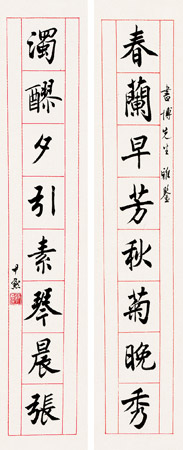 春蘭早芳秋菊晚秀
書博先生雅鑒
濁醪夕引素琴晨張
尹默